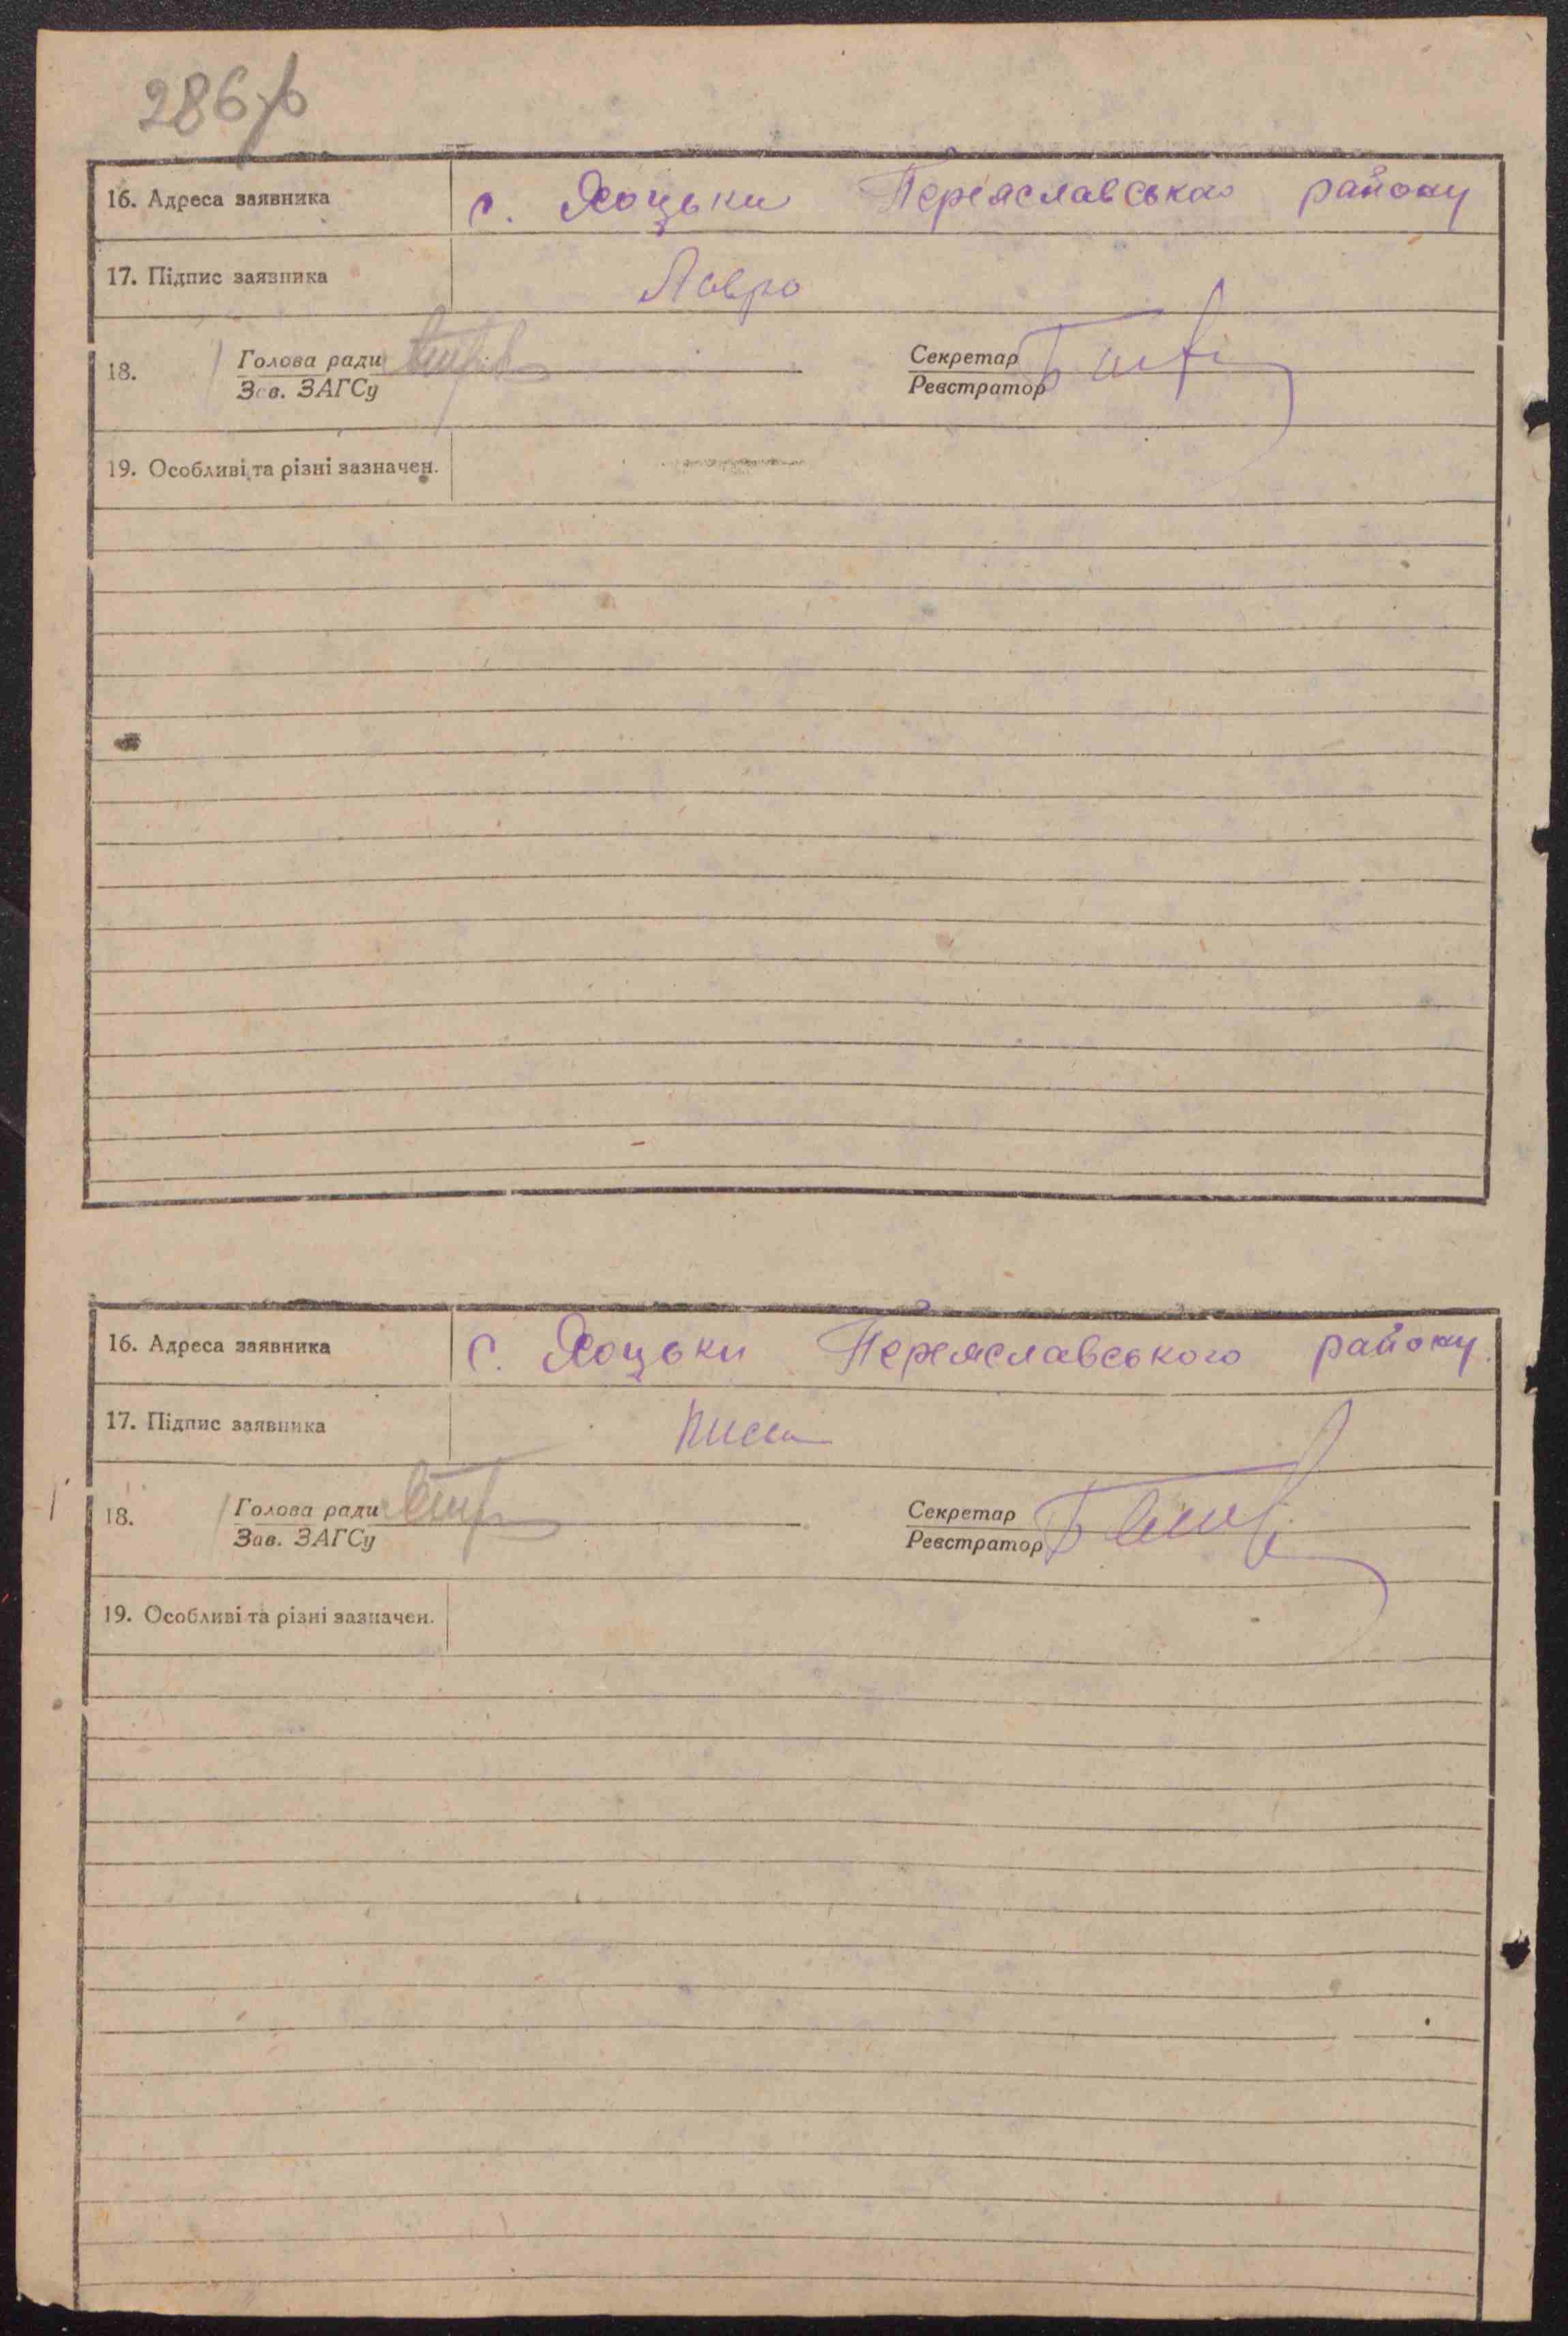 286
16. Адреса заявника с. Хоцьки Переяславського району
17. Підпис заявника Лавро
18. Голова ради Секретар
Зав. ЗАГСу Реєстратор
19. Особливі та різні зазначен.
16. Адреса заявника с. Хоцьки Переяславського району.
17. Підпис заявника
18. Голова ради Секретар
Зав. ЗАГСу Реєстратор
19. Особливі та різні зазначен.